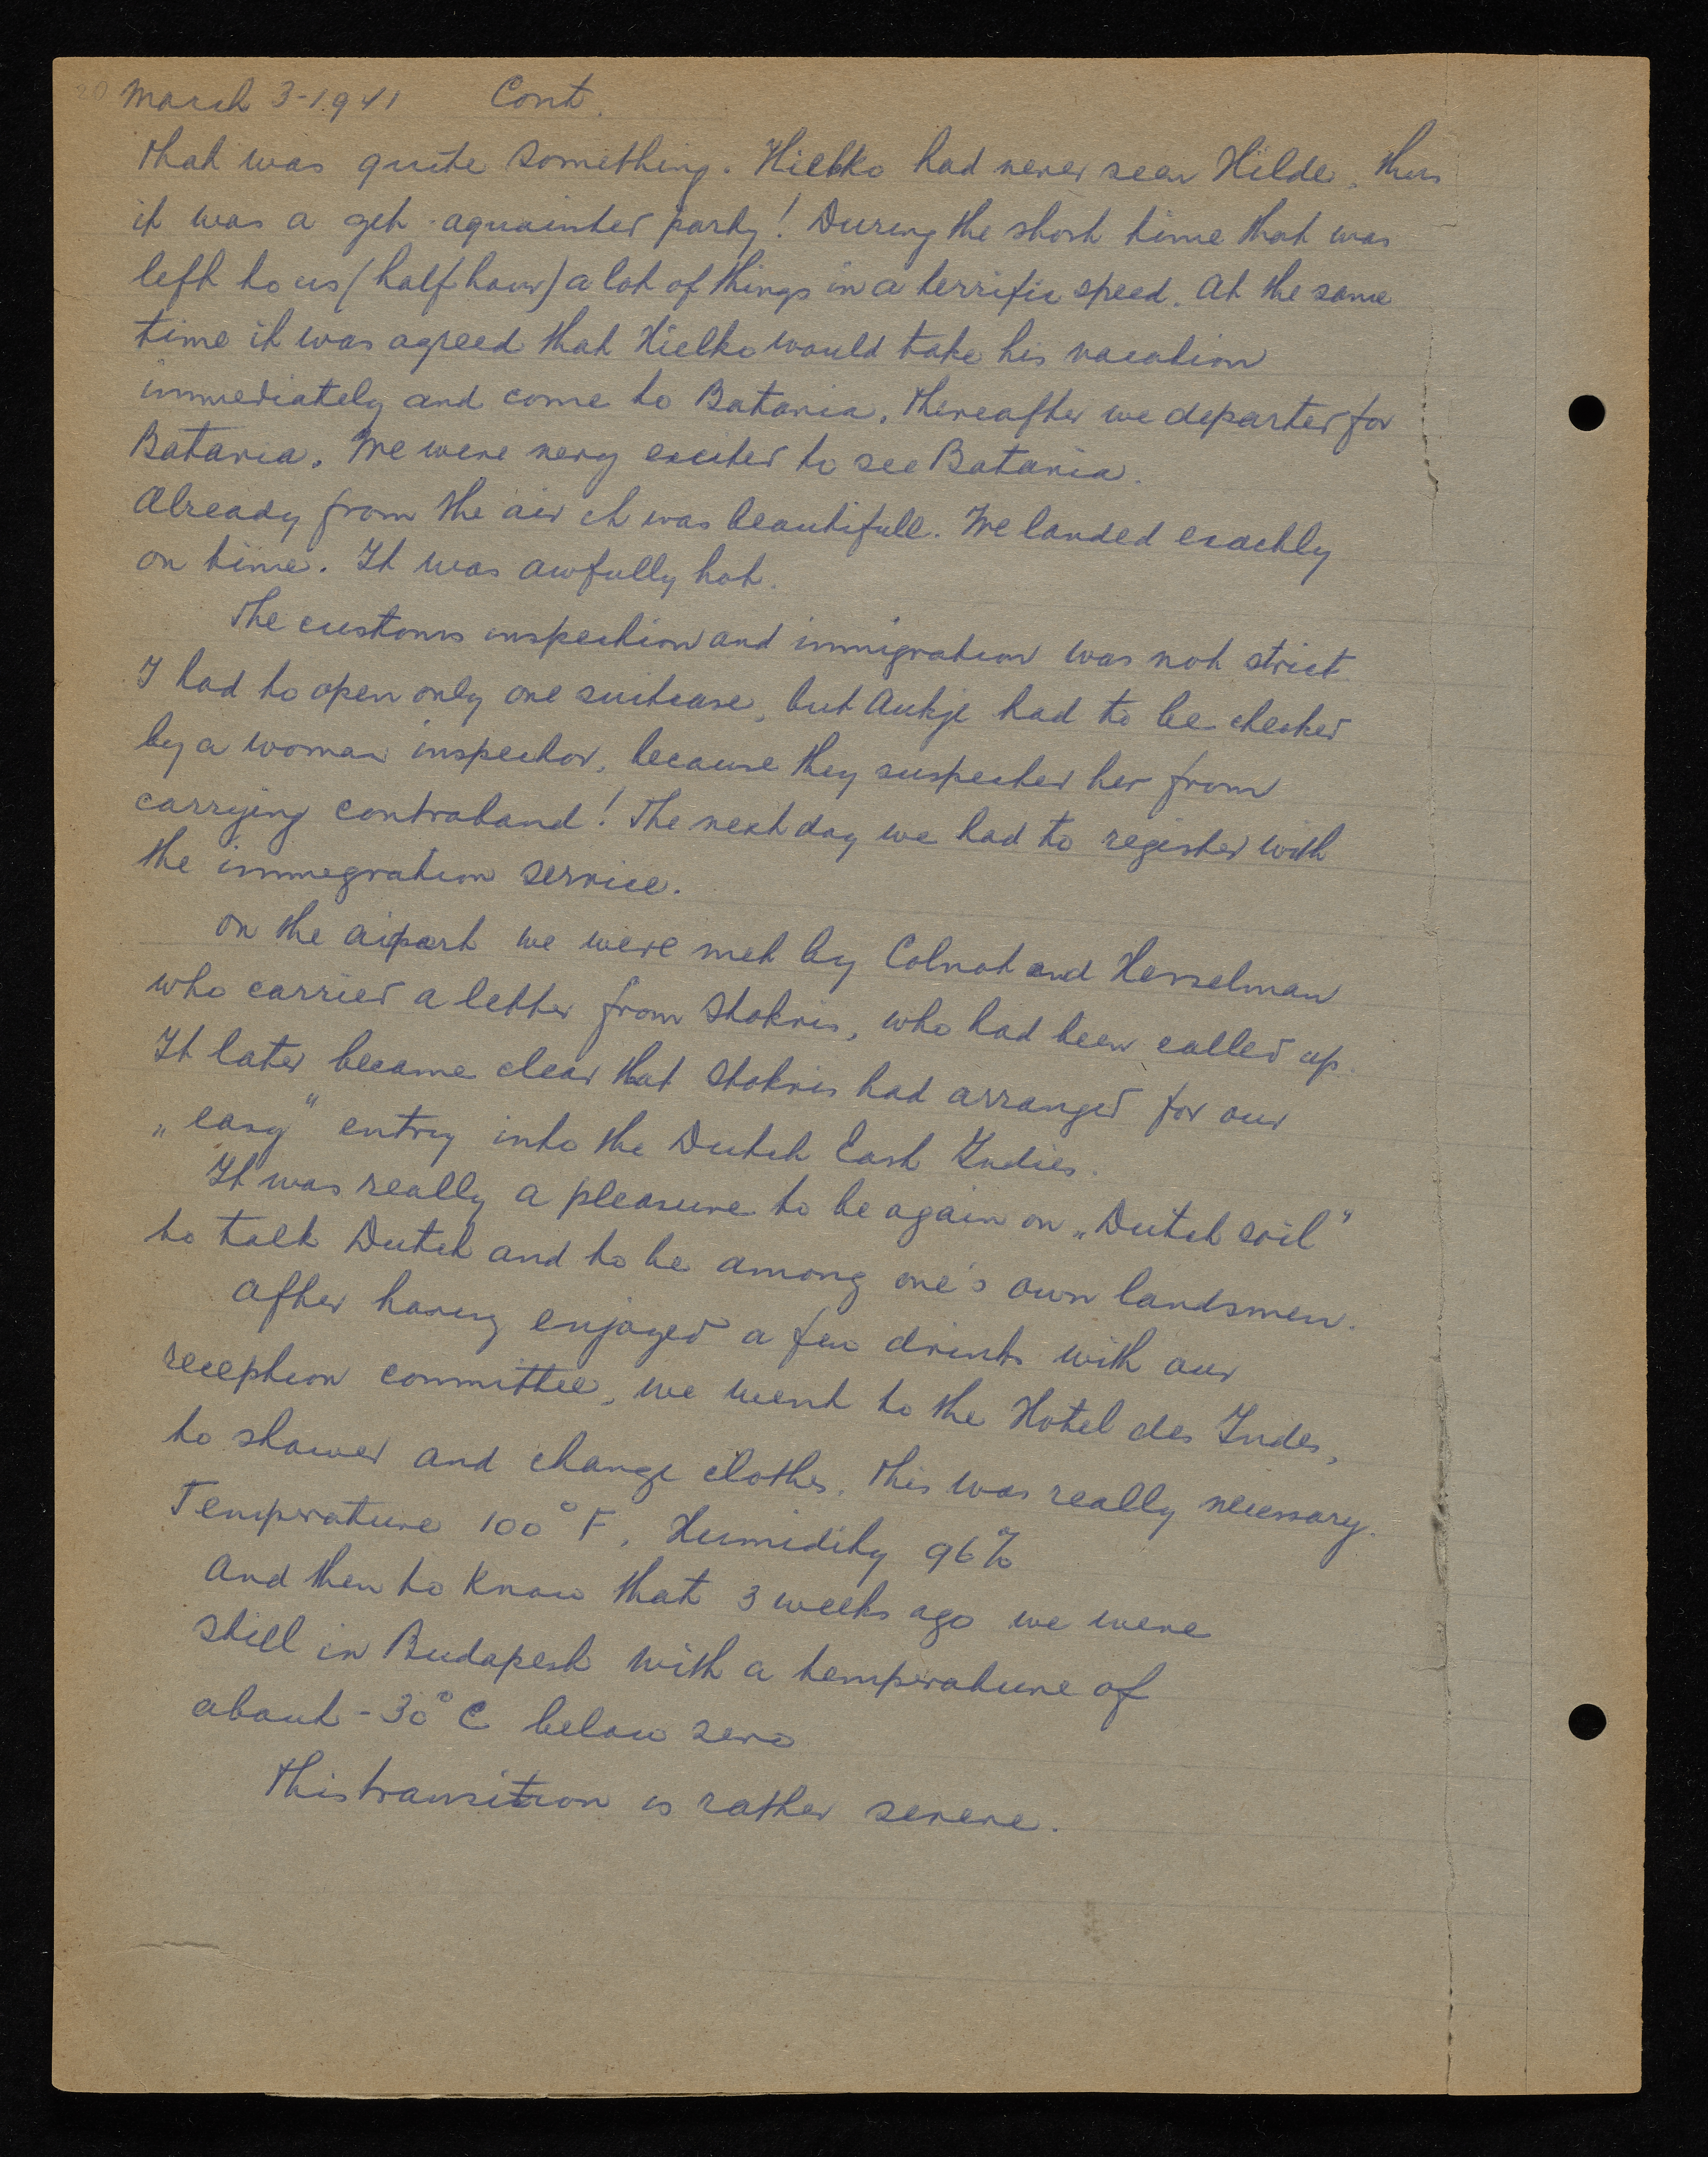 March 3-1941 Cont.
that was quite something. Hielko had never seen Hilde, thus
it was a get-aquainted party! During the short time that was
left to us (half hour) a lot of things in a terrific speed. At the same
time it was agreed that Hielko would take his vacation
immediately and come to Batavia. Thereafter we departed for
Batavia. We were very excited to see Batavia.
Already from the air it was beautifull. We landed exactly
on time. It was awfully hot.
The customs inspection and immigration was not strict
I had to open only one suitcase, but Aukje had to be checked
by a woman inspector, because they suspected her from
carrying contraband! The next day we had to register with
the immegration service.
On the aiport we were met by Colnot and Hesselman
who carried a letter from Stokvis, who had been called up.
It later became clear that Stokvis had arranged for our
„easy" entry into the Dutch East Indies.
It was really a pleasure to be again on „Dutch soil"
to talk Dutch and to be among one's own landsmen.
After having enjoyed a few drinks with our
reception committee, we went to the Hotel des Indes,
to shower and change clothes. This was really necessary.
Temperature 100° F, Humidity 96%
And then to know that 3 weeks ago we were
still in Budapest with a temperature of
about -30° C below zero
This transition is rather severe.